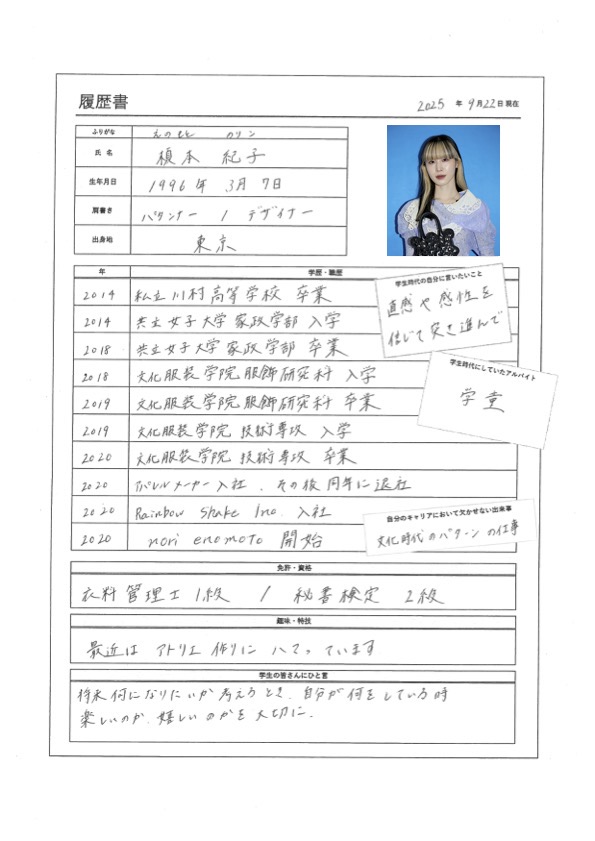 履歴書
2025 年 9月22日現在
ふりがな えのもと のりこ
氏名 榎本 紀子
生年月日 1996年 3月 7日
肩書き パタンナー / デザイナー
出身地 東京
年 学歴・職歴
2014 私立川村高等学校 卒業
2014 共立女子大学 家政学部 入学
2018 共立女子大学 家政学部 卒業
2018 文化服装学院 服飾研究科 入学
2019 文化服装学院 服飾研究科 卒業
2019 文化服装学院 技術専攻 入学
2020 文化服装学院 技術専攻 卒業
2020 アパレルメーカー入社、その後同年に退社
2020 Rainbow Shake Inc. 入社
2020 nori enomoto 開始
学生時代の自分に言いたいこと
直感や感性を
信じて突き進んで
学生時代にしていたアルバイト
学童
自分のキャリアにおいて欠かせない出来事
文化時代のパターンの仕事
免許・資格
衣料管理士 1級 / 秘書検定 2級
趣味・特技
最近は アトリエ作りに ハマっています
学生の皆さんにひと言
将来何になりたいか考えるとき、自分が何をしている時
楽しいのか、嬉しいのかを大切に。